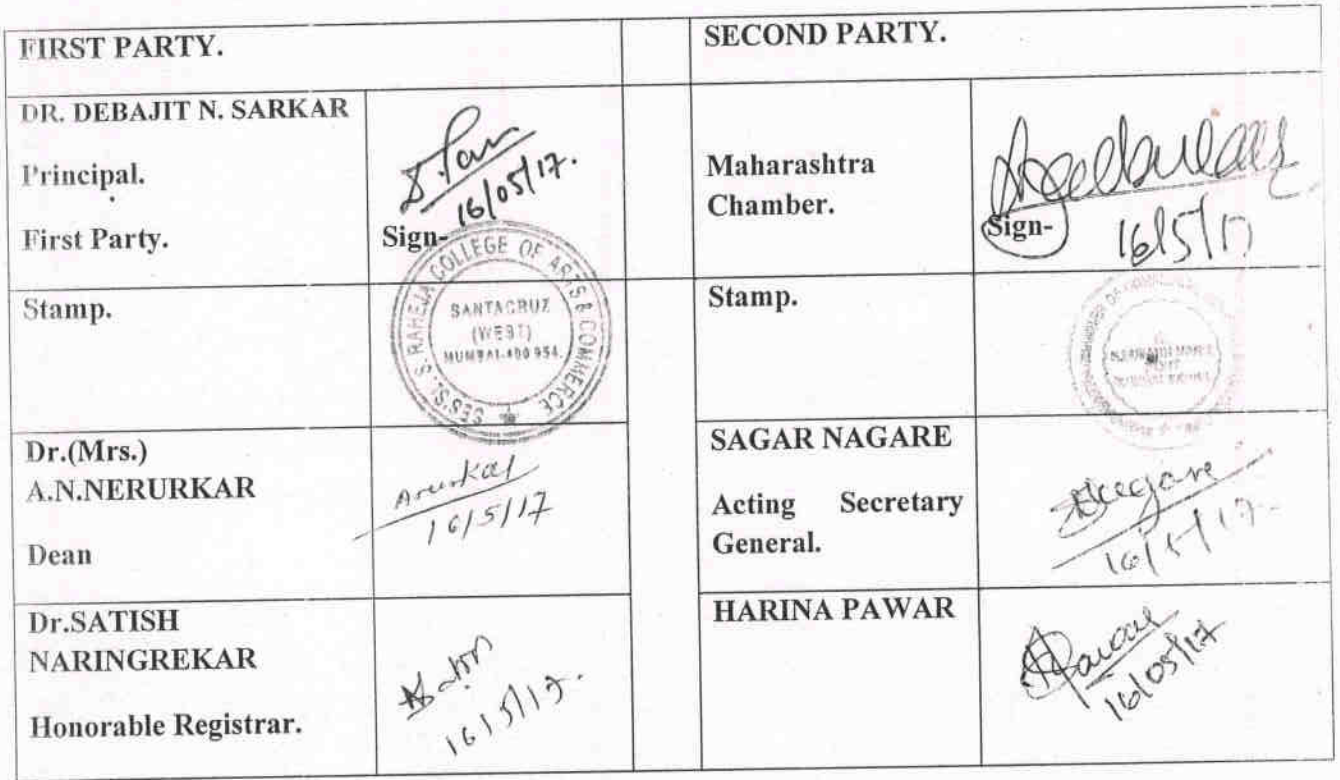 FIRST PARTY.
SECOND PARTY.
DR. DEBAJIT N. SARKAR
Principal.
First Party.
Sign-
16/05/17.
Maharashtra
Chamber.
Sign-
16/5/17
Stamp.
COLLEGE OF ARTS & COMMERCE
SES'S L. S. RAHEJA
SANTACRUZ
(WEST)
MUMBAI-400 054.
Stamp.
Dr.(Mrs.)
A.N.NERURKAR
Dean
16/5/17
SAGAR NAGARE
Acting Secretary
General.
16/5/17.
Dr.SATISH
NARINGREKAR
Honorable Registrar.
16/5/17.
HARINA PAWAR
16/05/17